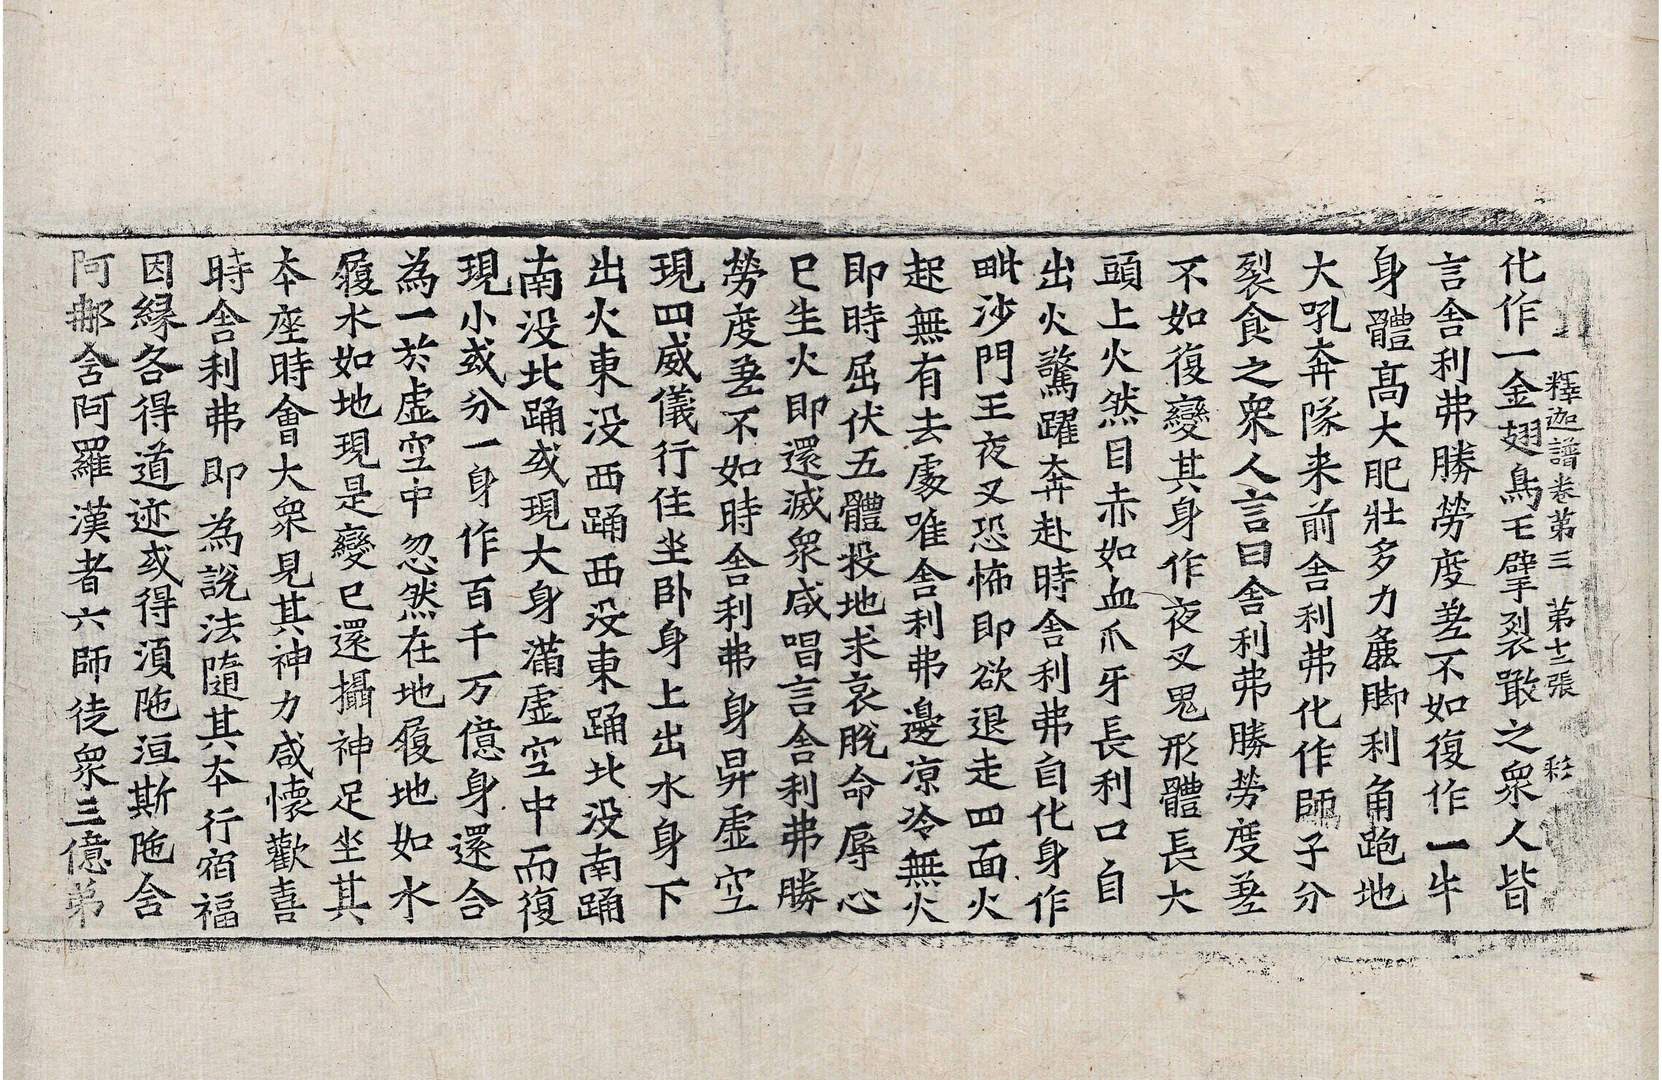 釋迦譜卷第三 第十二張 彩
化作一金翅鳥王擘裂噉之衆人皆
言舍利弗勝勞度差不如復作一牛
身體高大肥壯多力麁脚利角跑地
大吼奔隊来前舍利弗化作師子分
裂食之衆人言曰舍利弗勝勞度差
不如復變其身作夜叉鬼形體長大
頭上火然目赤如血爪牙長利口自
出火驚躍奔赴時舍利弗自化身作
毗沙門王夜叉恐怖即欲退走四面火
起無有去處唯舍利弗邊凉冷無火
即時屈伏五體投地求哀脫命辱心
已生火即還滅衆咸唱言舍利弗勝
勞度差不如時舍利弗身昇虛空
現四威儀行住坐卧身上出水身下
出火東没西踊西没東踊北没南踊
南没北踊或現大身滿虛空中而復
現小或分一身作百千万億身還合
為一於虛空中忽然在地履地如水
履水如地現是變已還攝神足坐其
本座時會大衆見其神力咸懷歡喜
時舍利弗即為說法隨其本行宿福
因緣各得道迹或得湏陁洹斯陁含
阿那含阿羅漢者六師徒衆三億弟